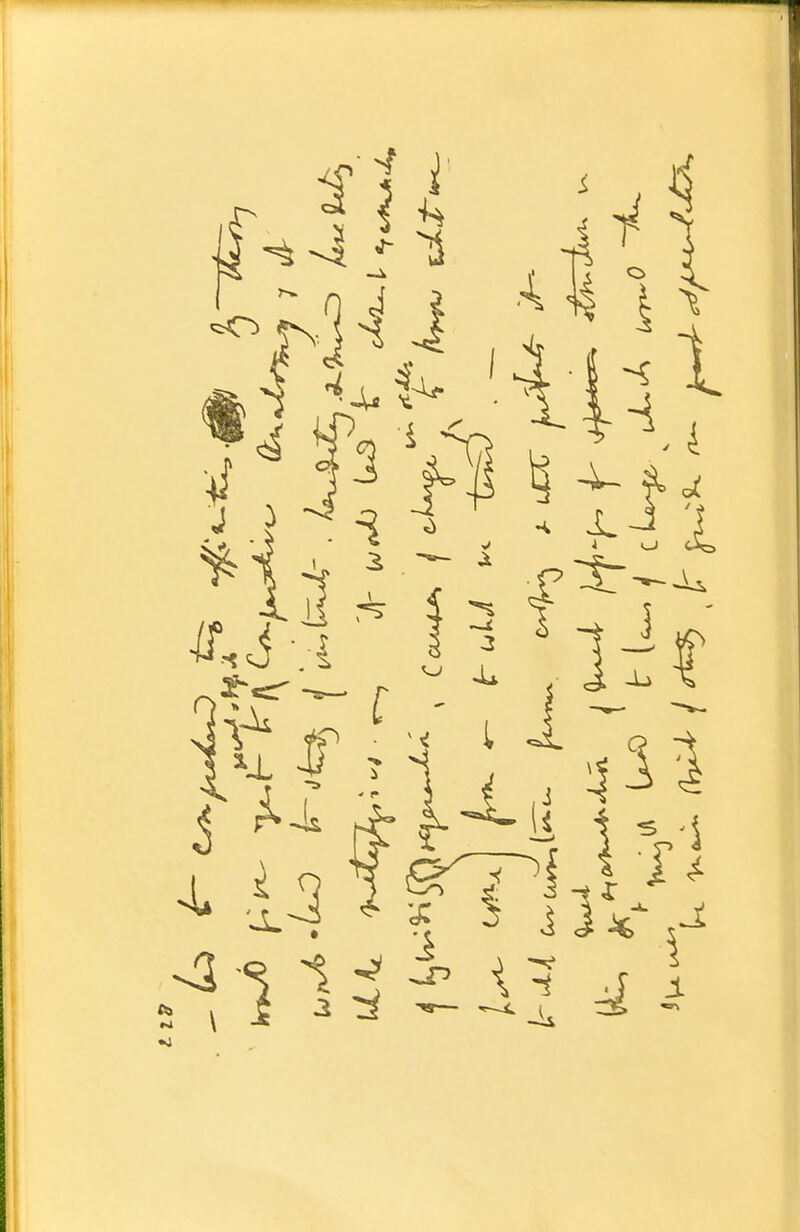 228
- led to comprehend true affinities. My theory
would give zest to recent & Fossil Comparative Anatomy, & it
would lead to study of instincts, heredity & mind heredity,
whole metaphysics. - It would lead to closest examination
of hybridity & generation, causes of change in order to know what we
have come from & to what we tend. —
to what circumstances favour crossing & what prevents it -
this & direct examination of direct passages of species structure in
species, might lead to laws of change, which would then
be main object of study, to guide our past speculations